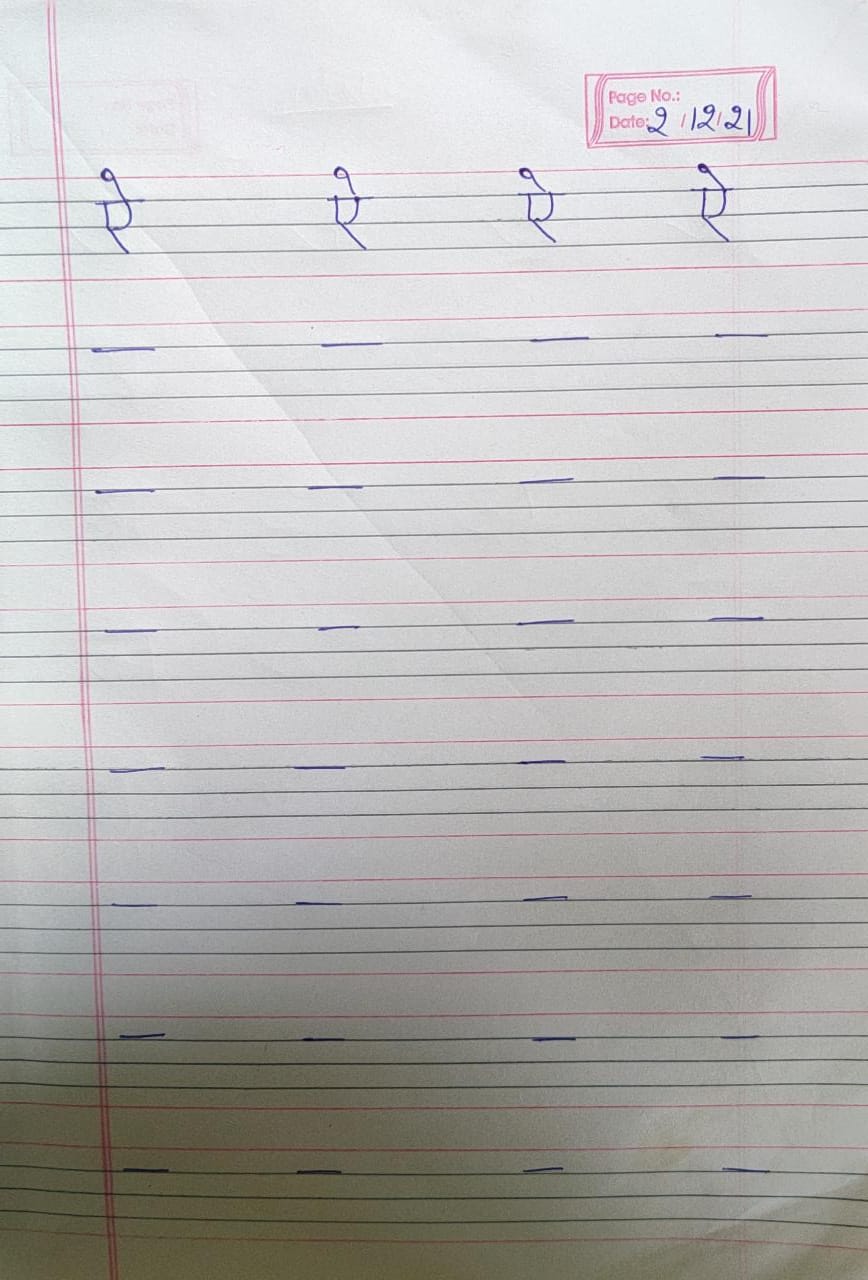 Page No.:
Date: 2/12/21
ऐ ऐ ऐ ऐ
— — — —
— — — —
— — — —
— — — —
— — — —
— — — —
— — — —